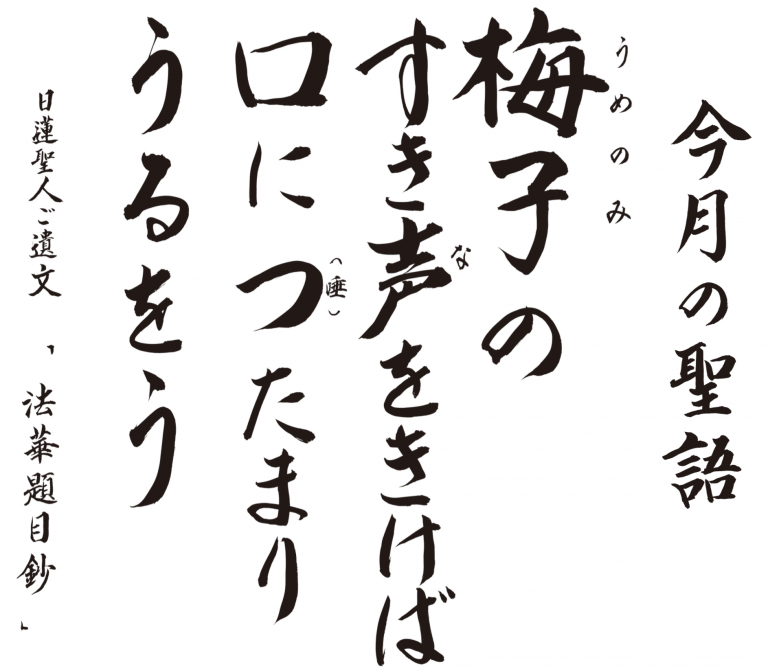 今月の聖語
うめのみ
梅子の
な
すき声をきけば
(唾)
口につたまり
うるをう
日蓮聖人ご遺文 「法華題目鈔」